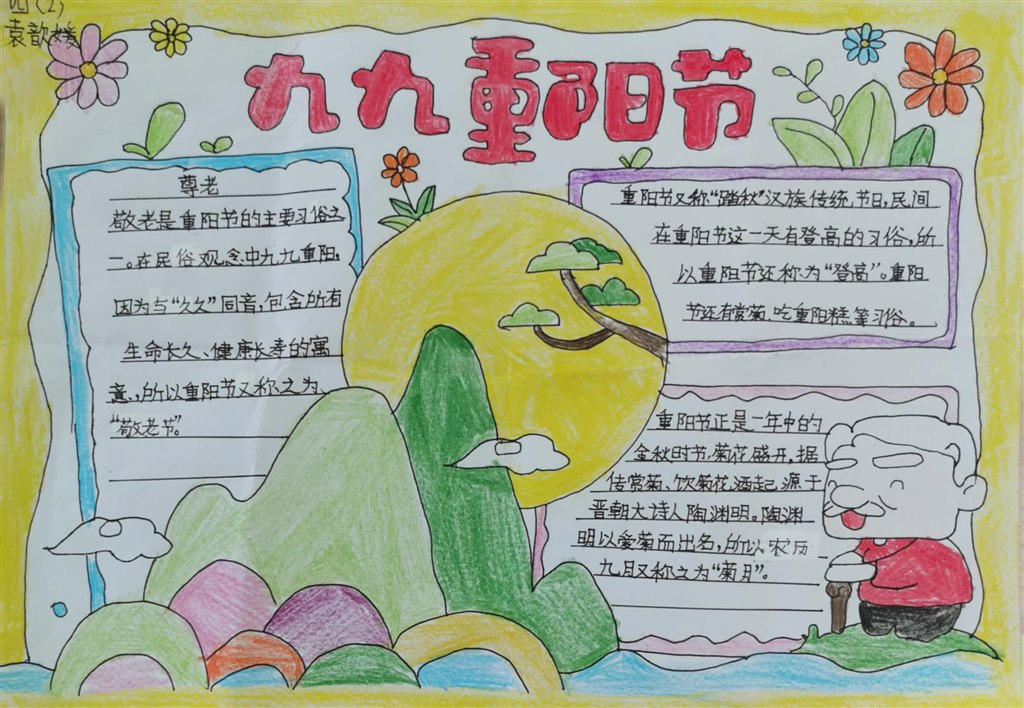 四(2)
袁歆媛
九九重阳节
尊老
敬老是重阳节的主要习俗之
一。在民俗观念中九九重阳,
因为与“久久”同音,包含所有
生命长久、健康长寿的寓
意,所以重阳节又称之为、
“敬老节”。
重阳节又称“踏秋”汉族传统,节日,民间
在重阳节这一天有登高的习俗,所
以重阳节还称为“登高”。重阳
节还有赏菊、吃重阳糕等习俗。
重阳节正是一年中的
金秋时节,菊花盛开,据
传赏菊、饮菊花酒起源于
晋朝大诗人陶渊明。陶渊
明以爱菊而出名,所以农历
九月又称之为“菊月”。